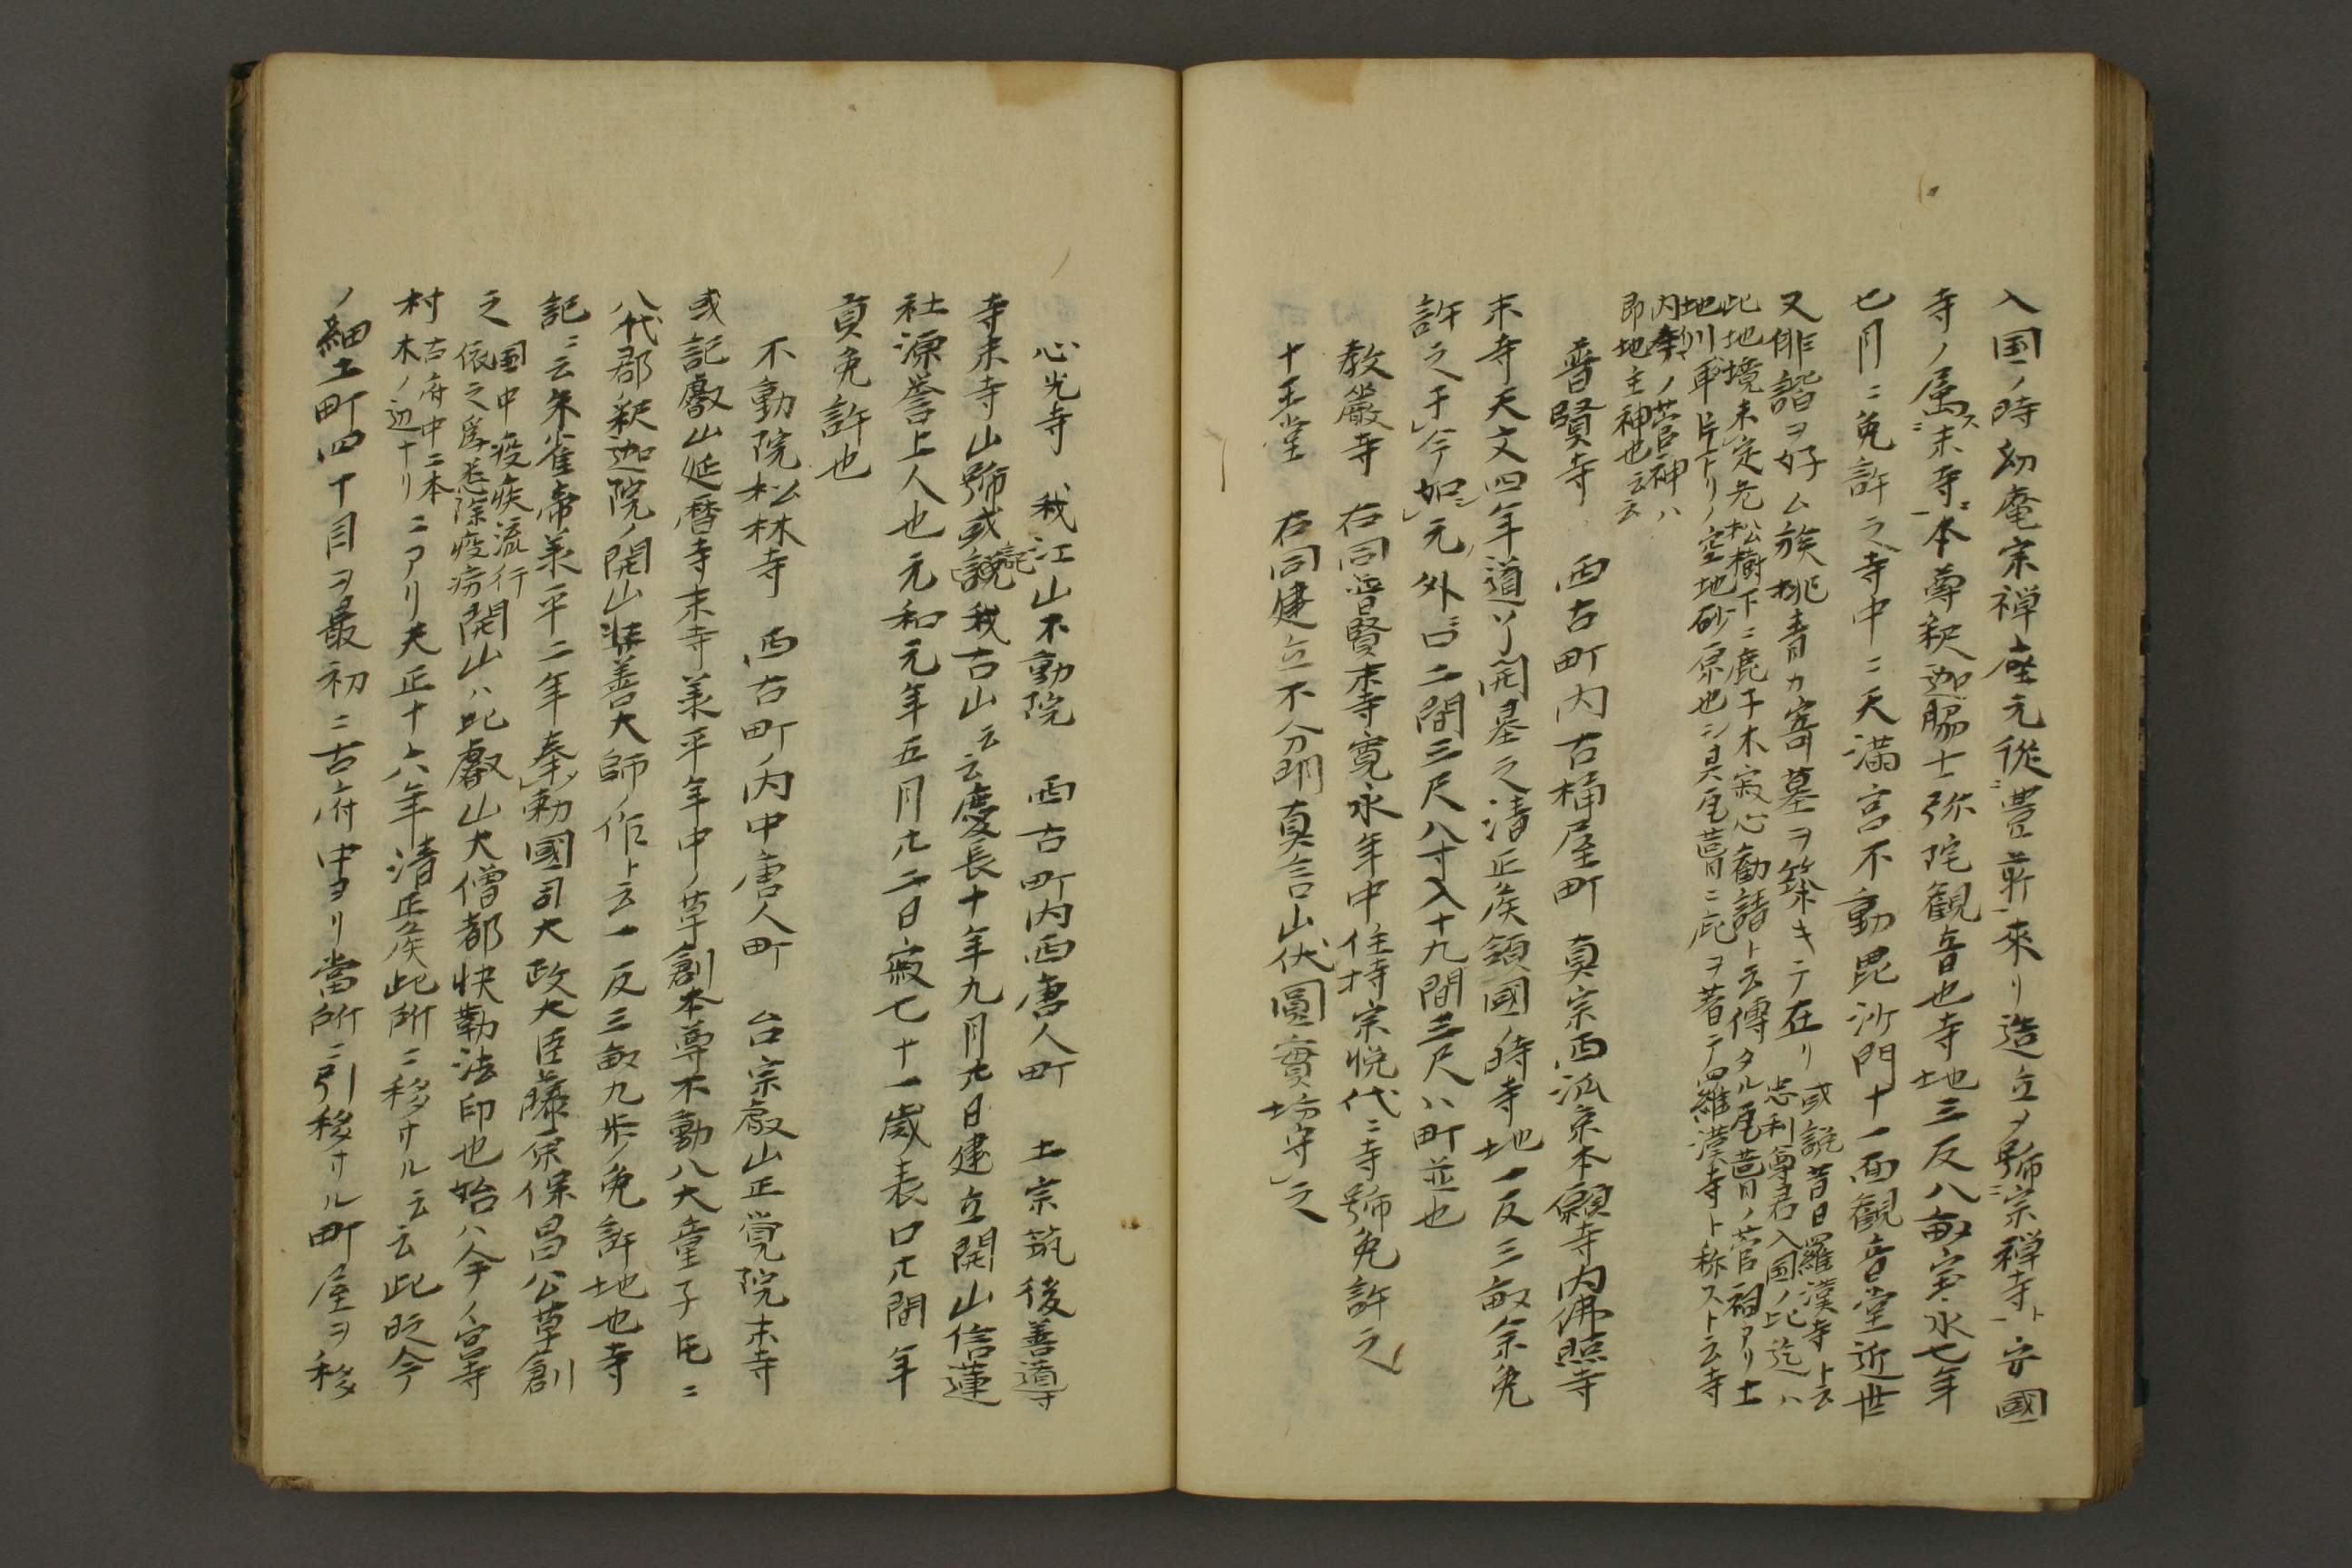 入国ノ時幼庵宗禅座元従豊前来リ造立メ號宗禅寺ト安國
寺ノ属ス末寺ニ本尊釈迦脇士弥陀観音也寺地三反八畝宝永七年
七月ニ免許之寺中ニ天満宮不動毘沙門十一面観音堂近世
又俳諧ヲ好ム族桃青カ寄墓ヲ築キテ在リ
或説昔日羅漢寺ト云
忠利尊君入国ノ比迄ハ
此地境未定元松樹下ニ鹿子木寂心勧請ト云傳タル尾葺ノ菅祠アリ土
地川車片ドリノ空地砂原也シ具尾葺ニ庇ヲ著テ羅漢寺ト称スト云寺
内ノ菅神ハ
即地主神也云云
普賢寺 西古町内古桶屋町 真宗西派京本願寺内佛照寺
末寺天文四年道了開基之清正侯領國ノ時寺地一反三畝余免
許之于今如元外ニ口二間三尺八寸入十九間三尺八町並也
教巌寺 右同普賢末寺寛永年中住持宗悦代ニ寺號免許之
十王堂 右同建立不分明真言山伏圓實坊守之
心光寺 我江山不動院 西古町内西唐人町 土宗筑後善導
寺末寺山號或記我古山云云慶長十年九月九日建立開山信蓮
社源誉上人也元和元年五月廿二日寂七十一歳表口廿間年
貢免許也
不動院松林寺 西古町ノ内中唐人町 台宗叡山正覚院末寺
或記叡山延暦寺末寺羕平年中ノ草創本尊不動八大童子氏ニ
八代郡釈迦院ノ開山弉善大師ノ作ト云一反三畝九歩ノ免許地也寺
記ニ云朱雀帝羕平二年奉勅國司大政大臣藤原保昌公草創
之
国中疫疾流行
依之為悉除疫癘
開山ハ比叡山大僧都快勒法印也始ハ今ノ宮寺
村
古府中二本
木ノ辺ナリ
ニアリ天正十六年清正侯此所ニ移サル云云此段今
ノ細工町四丁目ヲ最初ニ古府中ヨリ當所ニ引移サル町屋ヲ移